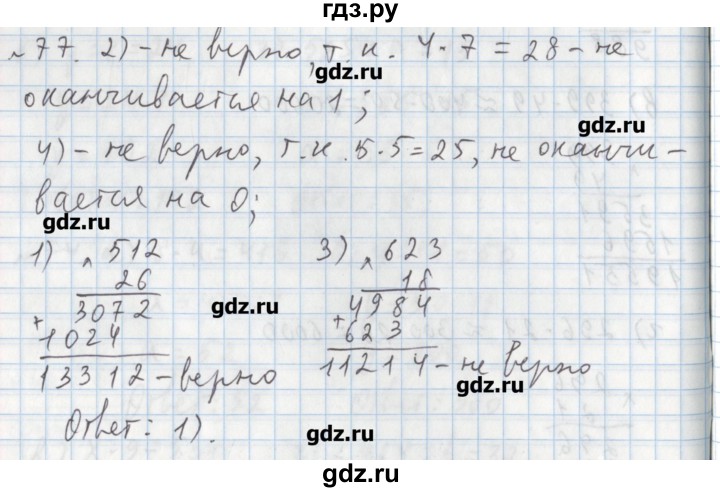 гдз.ру
№77. 2) - не верно, т к. 4·7=28 - не
gdz.ru
оканчивается на 1;
gdz.ru
4) - не верно, т.к. 5·5=25, не оканчи-
вается на 0;
gdz.ru
1) × 512
26
3072
+ 1024
13312 - верно
gdz.ru
3) × 623
18
4984
+ 623
11214 - не верно
gdz.ru
Ответ: 1).
gdz.ru
gdz.ru